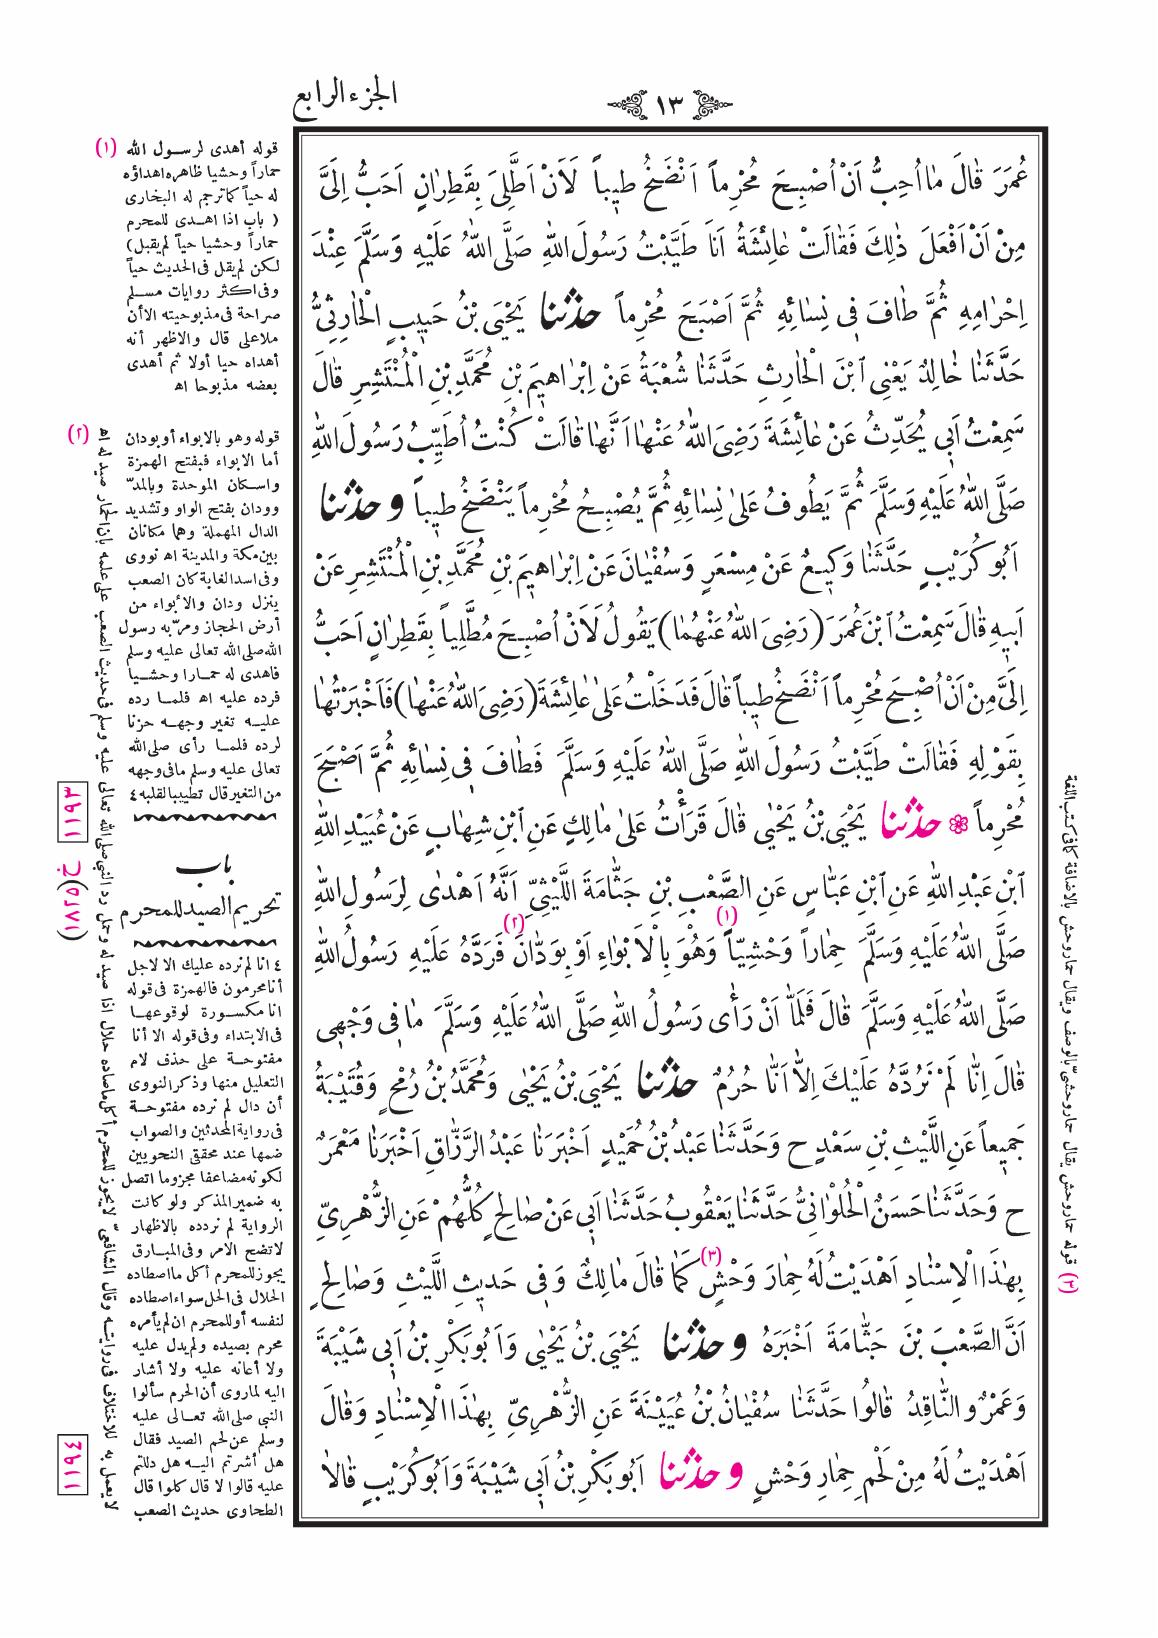 ١٣
الجزء الرابع
عُمَرَ قَالَ مَا اُحِبُّ اَنْ اُصْبِحَ مُحْرِماً اَنْضَخُ طِيباً لَاَنْ اَطَّلِىَ بِقَطِرَانٍ اَحَبُّ اِلَىَّ
مِنْ اَنْ اَفْعَلَ ذٰلِكَ فَقَالَتْ عَائِشَةُ اَنَا طَيَّبْتُ رَسُولَ اللهِ صَلَّى اللهُ عَلَيْهِ وَسَلَّمَ عِنْدَ
اِحْرَامِهِ ثُمَّ طَافَ فِى نِسَائِهِ ثُمَّ اَصْبَحَ مُحْرِماً حدثنا يَحْيَى بْنُ حَبِيبٍ الْحَارِثِىُّ
حَدَّثَنَا خَالِدٌ يَعْنِى ابْنَ الْحَارِثِ حَدَّثَنَا شُعْبَةُ عَنْ اِبْرَاهِيمَ بْنِ مُحَمَّدِ بْنِ الْمُنْتَشِرِ قَالَ
سَمِعْتُ اَبِى يُحَدِّثُ عَنْ عَائِشَةَ رَضِىَ اللهُ عَنْهَا اَنَّهَا قَالَتْ كُنْتُ اُطَيِّبُ رَسُولَ اللهِ
صَلَّى اللهُ عَلَيْهِ وَسَلَّمَ ثُمَّ يَطُوفُ عَلىٰ نِسَائِهِ ثُمَّ يُصْبِحُ مُحْرِماً يَنْضَخُ طِيباً و حدثنا
اَبُو كُرَيْبٍ حَدَّثَنَا وَكِيعٌ عَنْ مِسْعَرٍ وَسُفْيَانَ عَنْ اِبْرَاهِيمَ بْنِ مُحَمَّدِ بْنِ الْمُنْتَشِرِ عَنْ
اَبِيهِ قَالَ سَمِعْتُ ابْنَ عُمَرَ (رَضِىَ اللهُ عَنْهُمَا) يَقُولُ لَاَنْ اُصْبِحَ مُطَّلِياً بِقَطِرَانٍ اَحَبُّ
اِلَىَّ مِنْ اَنْ اُصْبِحَ مُحْرِماً اَنْضَخُ طِيباً قَالَ فَدَخَلْتُ عَلىٰ عَائِشَةَ (رَضِىَ اللهُ عَنْهَا) فَاَخْبَرْتُهَا
بِقَوْلِهِ فَقَالَتْ طَيَّبْتُ رَسُولَ اللهِ صَلَّى اللهُ عَلَيْهِ وَسَلَّمَ فَطَافَ فِى نِسَائِهِ ثُمَّ اَصْبَحَ
مُحْرِماً حدثنا يَحْيَى بْنُ يَحْيٰى قَالَ قَرَأْتُ عَلىٰ مَالِكٍ عَنِ ابْنِ شِهَابٍ عَنْ عُبَيْدِ اللهِ
ابْنِ عَبْدِ اللهِ عَنِ ابْنِ عَبَّاسٍ عَنِ الصَّعْبِ بْنِ جَثَّامَةَ اللَّيْثِىِّ اَنَّهُ اَهْدٰى لِرَسُولِ اللهِ
صَلَّى اللهُ عَلَيْهِ وَسَلَّمَ حِمَاراً وَحْشِيّاً (١) وَهُوَ بِالْاَبْوَاءِ اَوْ بِوَدَّانَ (٢) فَرَدَّهُ عَلَيْهِ رَسُولُ اللهِ
صَلَّى اللهُ عَلَيْهِ وَسَلَّمَ قَالَ فَلَمَّا اَنْ رَأٰى رَسُولُ اللهِ صَلَّى اللهُ عَلَيْهِ وَسَلَّمَ مَا فِى وَجْهِى
قَالَ اِنَّا لَمْ نَرُدَّهُ عَلَيْكَ اِلَّا اَنَّا حُرُمٌ حدثنا يَحْيَى بْنُ يَحْيٰى وَمُحَمَّدُ بْنُ رُمْحٍ وَقُتَيْبَةُ
جَمِيعاً عَنِ اللَّيْثِ بْنِ سَعْدٍ ح وَحَدَّثَنَا عَبْدُ بْنُ حُمَيْدٍ اَخْبَرَنَا عَبْدُ الرَّزَّاقِ اَخْبَرَنَا مَعْمَرٌ
ح وَحَدَّثَنَا حَسَنٌ الْحُلْوَانِىُّ حَدَّثَنَا يَعْقُوبُ حَدَّثَنَا اَبِى عَنْ صَالِحٍ كُلُّهُمْ عَنِ الزُّهْرِىِّ
بِهٰذَا الْاِسْنَادِ اَهْدَيْتُ لَهُ حِمَارَ وَحْشٍ (٣) كَمَا قَالَ مَالِكٌ وَفِى حَدِيثِ اللَّيْثِ وَصَالِحٍ
اَنَّ الصَّعْبَ بْنَ جَثَّامَةَ اَخْبَرَهُ و حدثنا يَحْيَى بْنُ يَحْيٰى وَاَبُو بَكْرِ بْنُ اَبِى شَيْبَةَ
وَعَمْرٌو النَّاقِدُ قَالُوا حَدَّثَنَا سُفْيَانُ بْنُ عُيَيْنَةَ عَنِ الزُّهْرِىِّ بِهٰذَا الْاِسْنَادِ وَقَالَ
اَهْدَيْتُ لَهُ مِنْ لَحْمِ حِمَارِ وَحْشٍ و حدثنا اَبُو بَكْرِ بْنُ اَبِى شَيْبَةَ وَاَبُو كُرَيْبٍ قَالَا
(١) قوله أهدى لرسول الله
حماراً وحشيا ظاهره اهداؤه
له حياً كما ترجم له البخارى
( باب اذا اهدى للمحرم
حماراً وحشيا حياً لم يقبل)
لكن لم يقل فى الحديث حياً
وفى اكثر روايات مسلم
صراحة فى مذبوحيته الا أن
ملا على قال والاظهر أنه
أهداه حيا أولا ثم أهدى
بعضه مذبوحا اه
(٢) قوله وهو بالابواء أو بودان
أما الابواء فبفتح الهمزة
واسكان الموحدة وبالمدّ
وودان بفتح الواو وتشديد
الدال المهملة وهما مكانان
بين مكة والمدينة اه نووى
وفى اسد الغابة كان الصعب
ينزل ودان والأبواء من
أرض الحجاز ومرّ به رسول
الله صلى الله تعالى عليه وسلم
فاهدى له حمارا وحشيا
فرده عليه اه فلما رده
عليه تغير وجهه حزنا
لرده فلما رأى صلى الله
تعالى عليه وسلم ما فى وجهه
من التغير قال تطييبا لقلبه ٤
باب
تحريم الصيد للمحرم
٤ انا لم نرده عليك الا لاجل
أنا محرمون فالهمزة فى قوله
انا مكسورة لوقوعها
فى الابتداء وفى قوله الا أنا
مفتوحة على حذف لام
التعليل منها وذكر النووى
أن دال لم نرده مفتوحة
فى رواية المحدثين والصواب
ضمها عند محققى النحويين
لكونه مضاعفا مجزوما اتصل
به ضمير المذكر ولو كانت
الرواية لم نردده بالاظهار
لاتضح الامر وفى المبارق
يجوز للمحرم أكل ما اصطاده
الحلال فى الحل سواء اصطاده
لنفسه أو للمحرم ان لم يأمره
محرم بصيده ولم يدل عليه
ولا أعانه عليه ولا أشار
اليه لما روى أن الحرم سألوا
النبى صلى الله تعالى عليه
وسلم عن لحم الصيد فقال
هل أشرتم اليه هل دللتم
عليه قالوا لا قال كلوا قال
الطحاوى حديث الصعب
لا يعمل به للاختلاف فى روايته وقال الشافعى لا يجوز للمحرم أكل ما صاده حلال اذا صيد له وحمل رد النبى صلى الله تعالى عليه وسلم فى حديث الصعب على علمه بان الحمار صيد له اه
(٣) قوله حمار وحش يقال حمار وحشىّ بالوصف ويقال حمار وحش بالاضافة كما فى كتب اللغة
١١٩٣
ج(٥٧١د)
١١٩٤